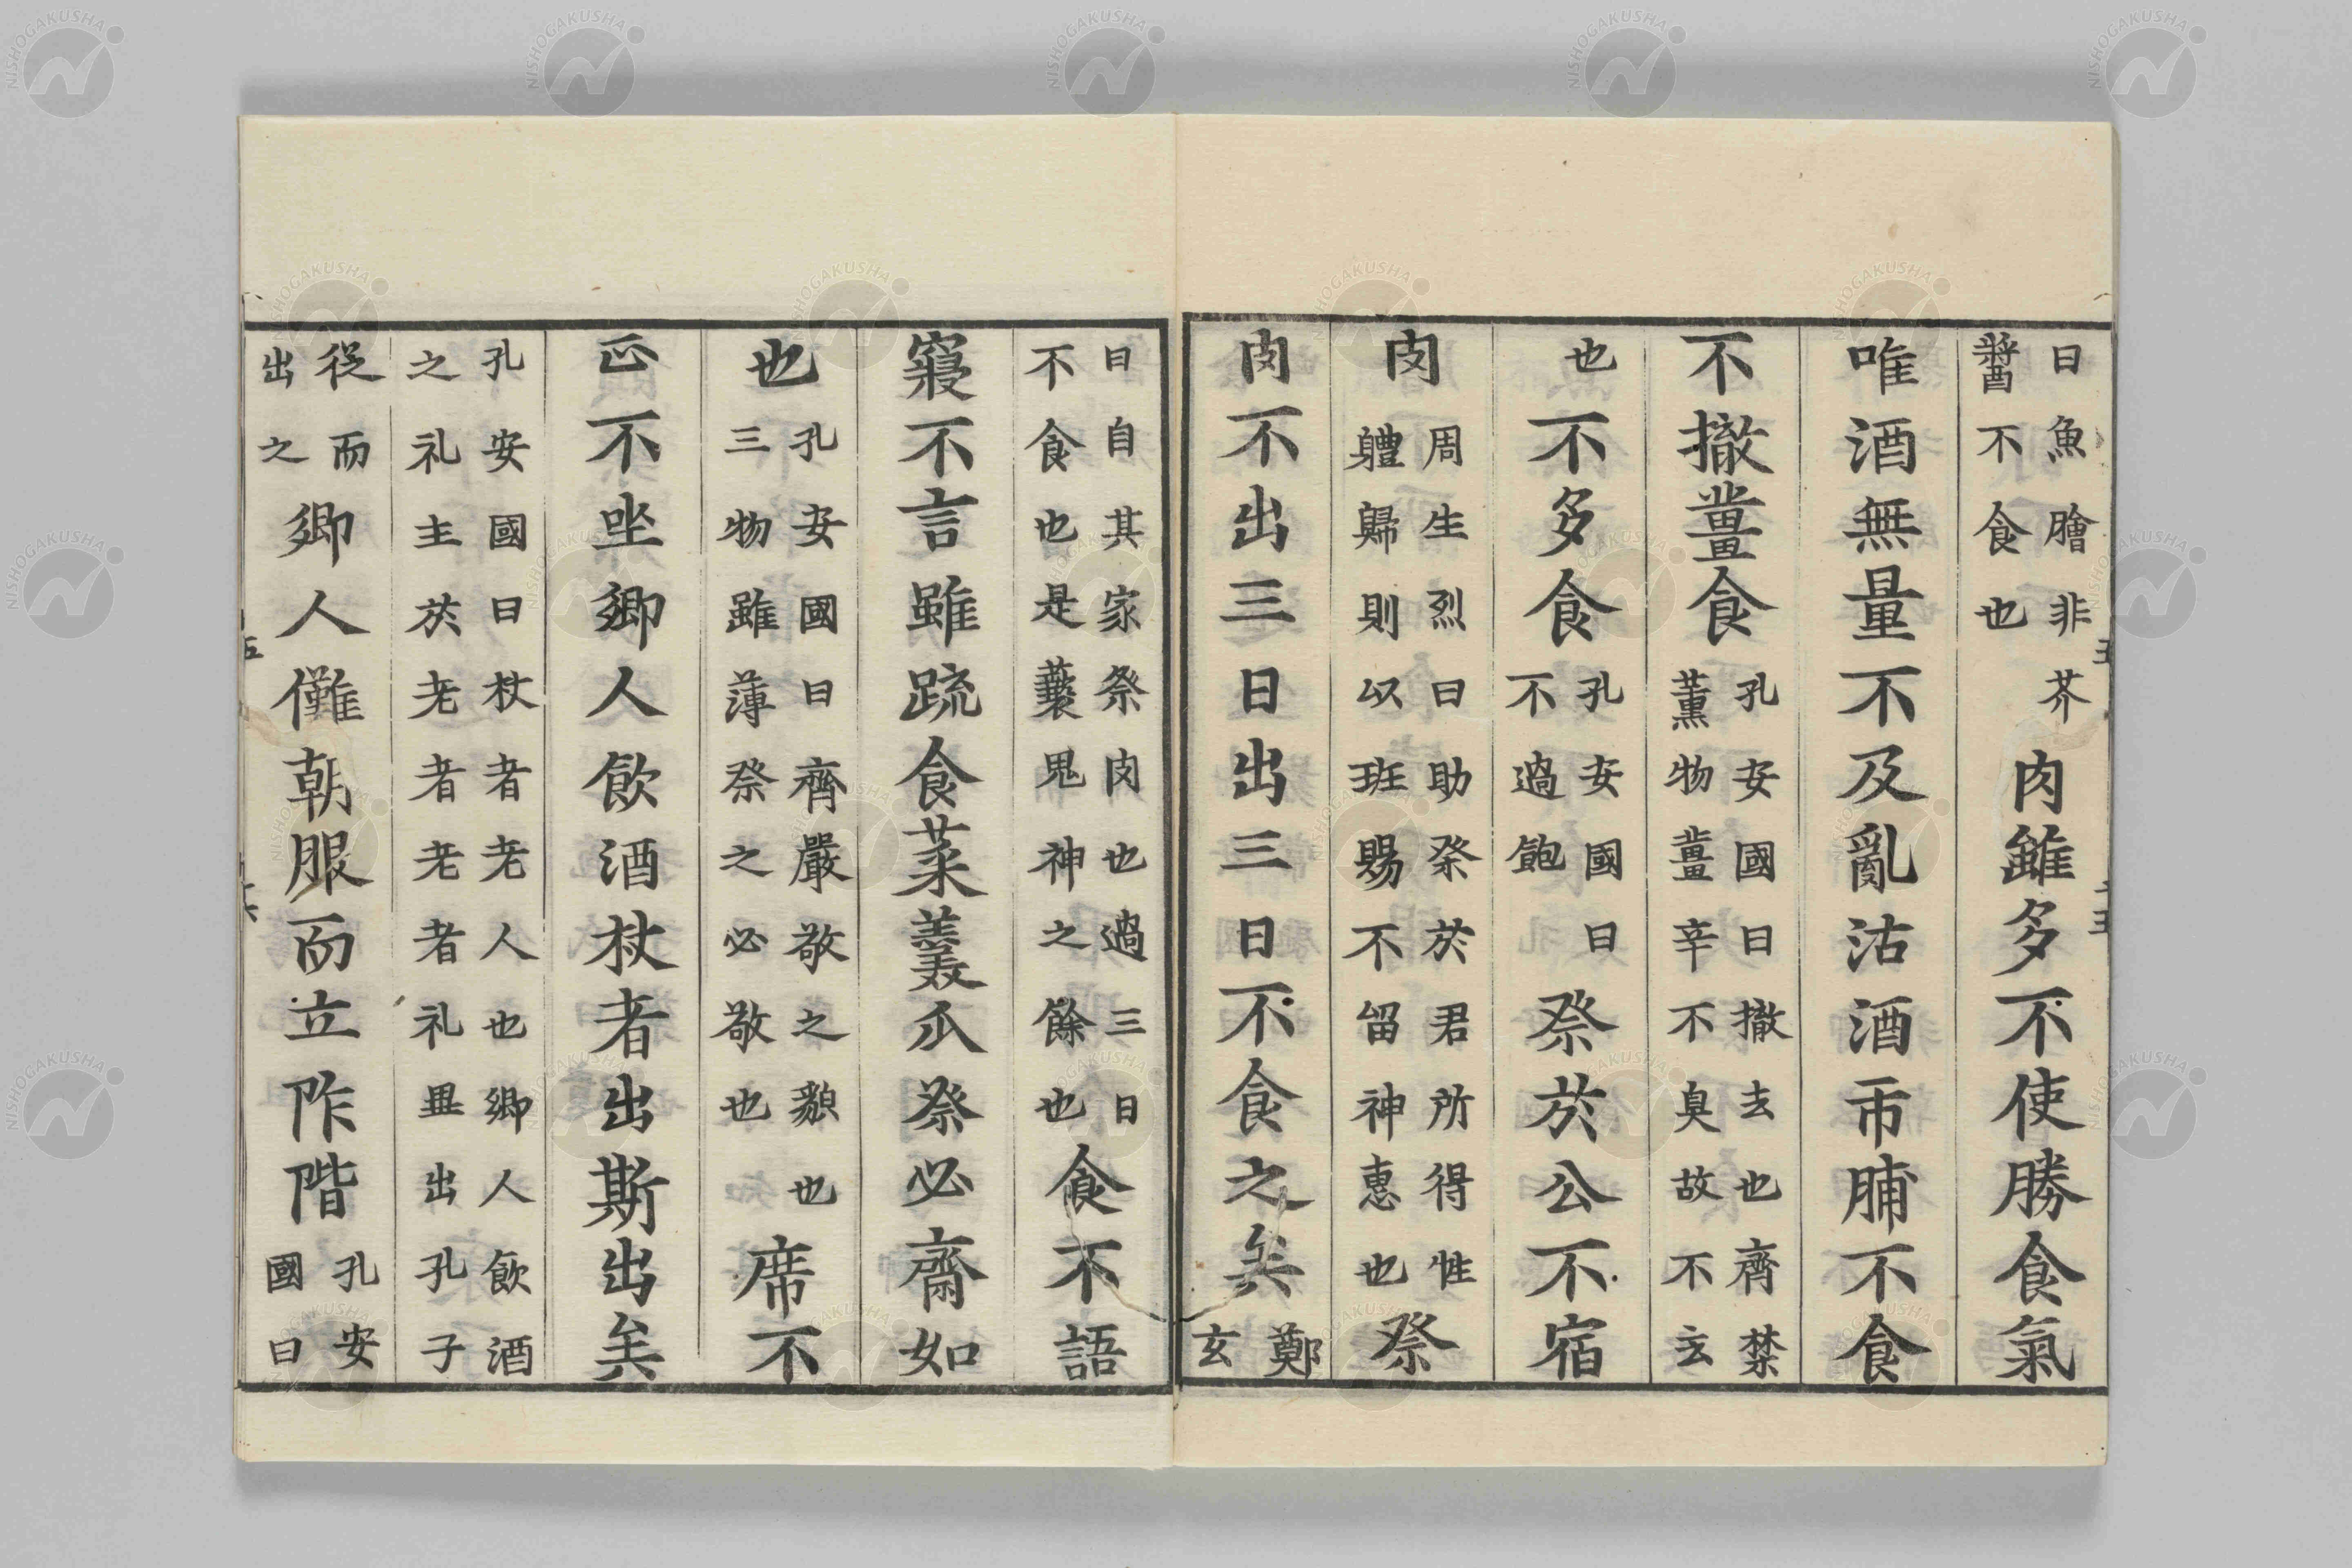 曰魚膾非芥醬不食也肉雖多不使勝食氣
唯酒無量不及亂沽酒市脯不食
不撤薑食孔安國曰撤去也齊禁薰物薑辛不臭故不去
也不多食孔安國曰不過飽祭於公不宿
肉周生烈曰助祭於君所得牲軆歸則以班賜不留神惠也祭
肉不出三日出三日不食之矣鄭玄
曰自其家祭肉也過三日不食也是褻鬼神之餘也食不語
寢不言雖蔬食菜羹瓜祭必齋如
也孔安國曰齊嚴敬之貌也三物雖薄祭之必敬也席不
正不坐鄉人飲酒杖者出斯出矣
孔安國曰杖者老人也鄉人飲酒之礼主於老者老者礼畢出孔子
從而出之鄉人儺朝服而立阼階孔安國曰
NISHOGAKUSHA